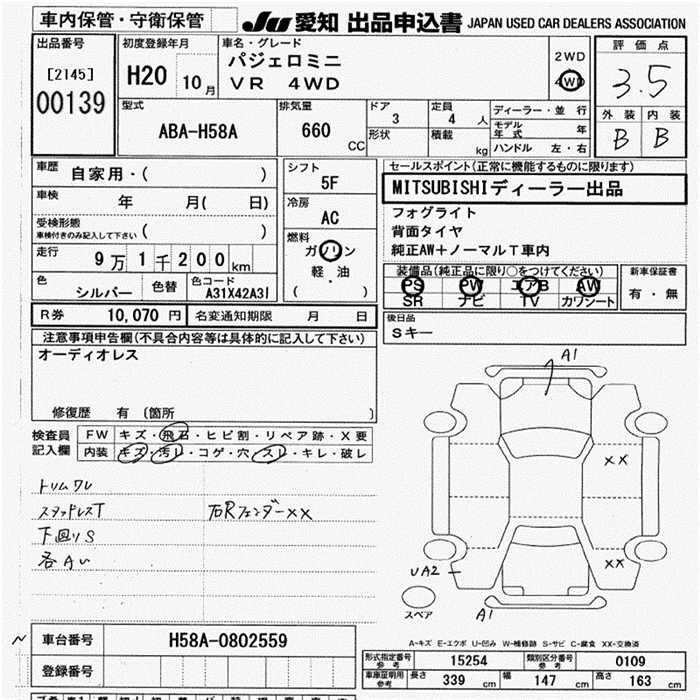 車内保管・守衛保管
JU 愛知 出品申込書 JAPAN USED CAR DEALERS ASSOCIATION
出品番号
[2145]
00139
初度登録年月
H20 10月
車名・グレード
パジェロミニ
VR 4WD
2WD
4WD
評価点
3.5
外装 内装
B B
型式
ABA-H58A
排気量
660 CC
ドア
3
形状
定員
4 人
積載
kg
ディーラー・並行
モデル年式 年
ハンドル 左・右
車歴
自家用・( )
車検
年 月( 日)
受検形態
車検付きのみ記入して下さい ( )
走行
9万1千200km
色
シルバー
色替
色コード
A31X42A3I
シフト
5F
冷房
AC
燃料
ガソリン
軽・油
( )
セールスポイント(正常に機能するものに限ります)
MITSUBISHIディーラー出品
フォグライト
背面タイヤ
純正AW+ノーマルT車内
装備品(純正品に限り○をつけてください)
PS PW エアB AW
SR ナビ TV カワシート
新車保証書
有・無
R券 10,070 円 名変通知期限 月 日
後日品
Sキー
注意事項申告欄(不具合内容等は具体的に記入して下さい)
オーディオレス
修復歴 有 (箇所 )
検査員記入欄
FW キズ・飛石・ヒビ割・リペア跡・X要
内装 キズ・汚レ・コゲ・穴・スレ・キレ・破レ
トリムワレ
スタッドレスT
下回りS
各Aい
右Rフェンダーxx
A1
xx
xx
UA2
スペア
A1
A-キズ E-エクボ U-凹み W-補修跡 S-サビ C-腐食 XX-交換済
車台番号
H58A-0802559
登録番号
形式指定番号参考 15254 類別区分番号参考 0109
車庫証明用参考 長さ 339 cm 幅 147 cm 高さ 163 cm